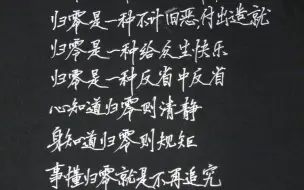 归零是一种不计旧恶付出造就
归零是一种给众生快乐
归零是一种反省中反省
心知道归零则清静
身知道归零则规矩
事懂归零就是不再追究